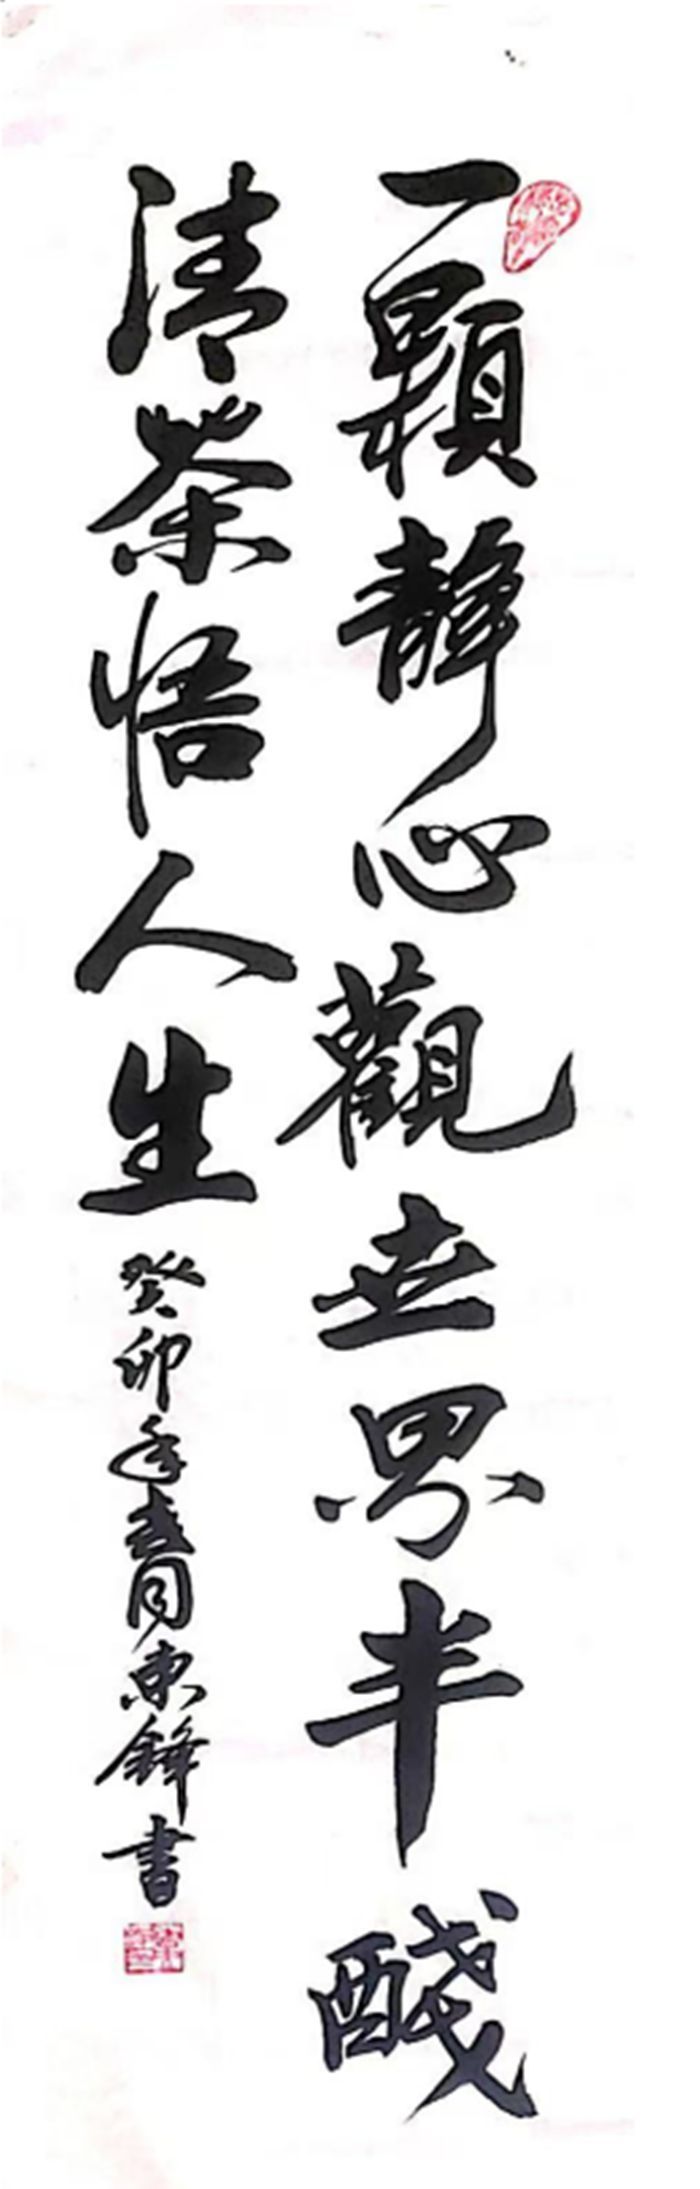 一顆靜心觀世界半醆
清茶悟人生
癸卯年春月東鋒書